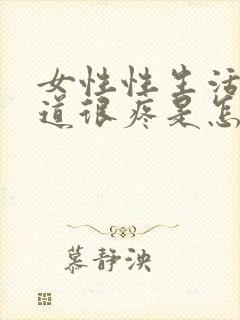 女性性生活
道很疼是怎
慕静泱